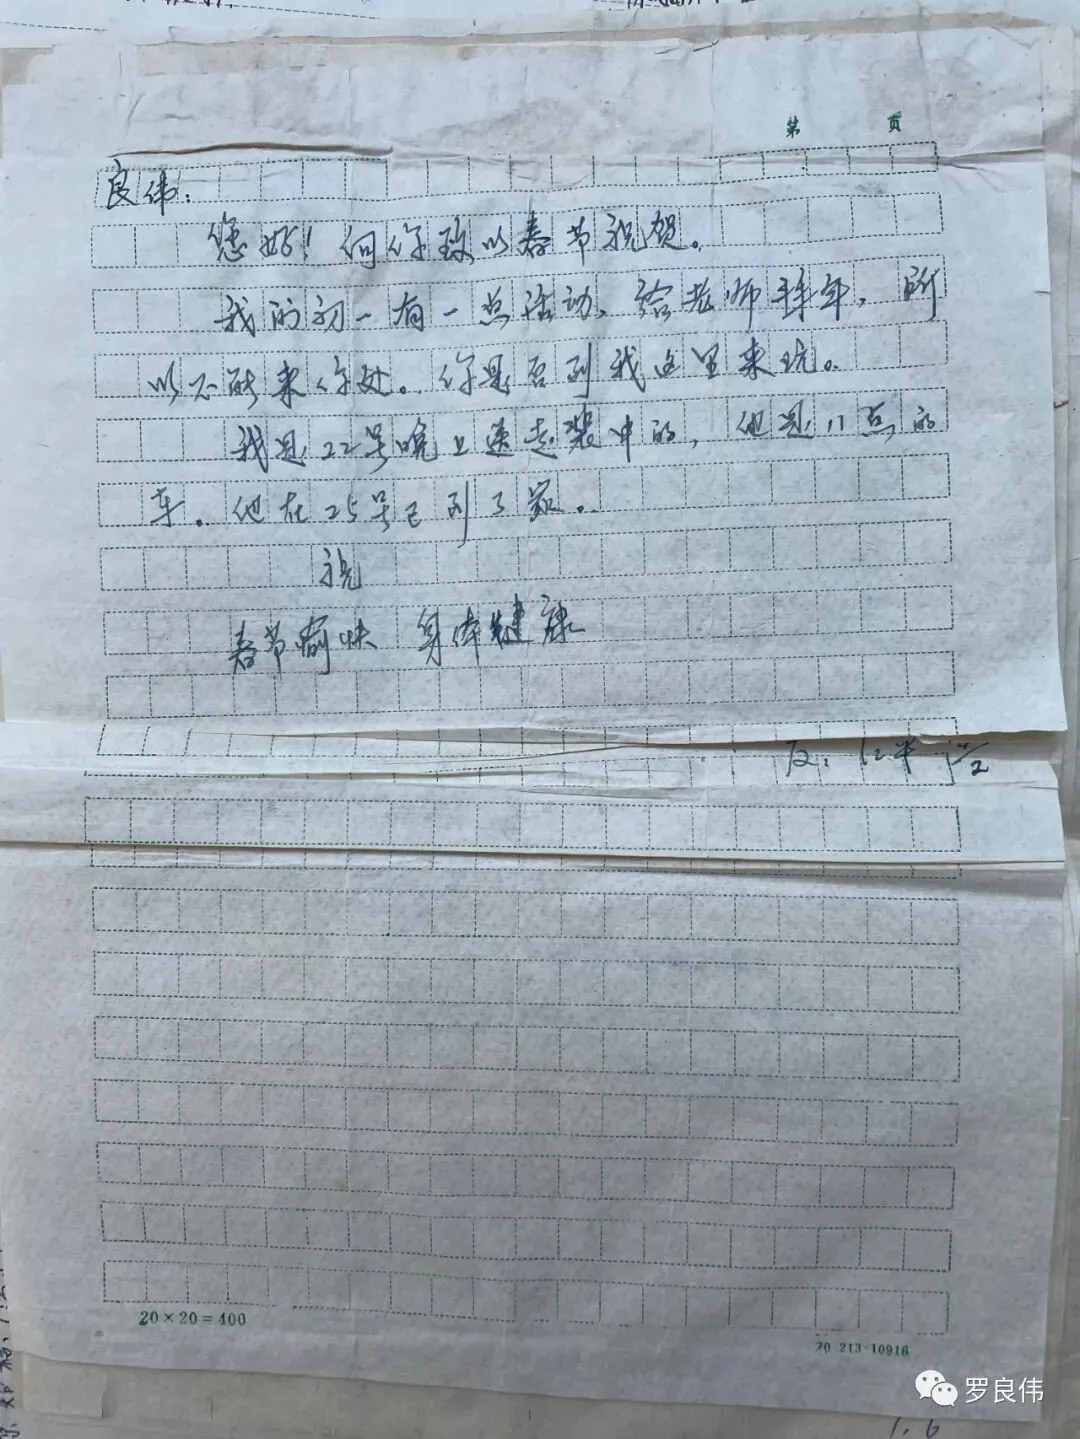 第 页
良伟：
您好！向你致以春节祝贺。
我的初一有一点活动、给老师拜年，所
以不能来你处。你是否到我这里来玩。
我是22号晚上送赵装中的，他是11点的
车。他在25号已到了家。
祝
春节愉快 身体健康
友：
20×20=400
20-213-10916
罗良伟
1.6